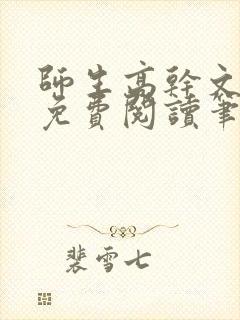 師生高幹文
免費閱讀筆
裴雪七